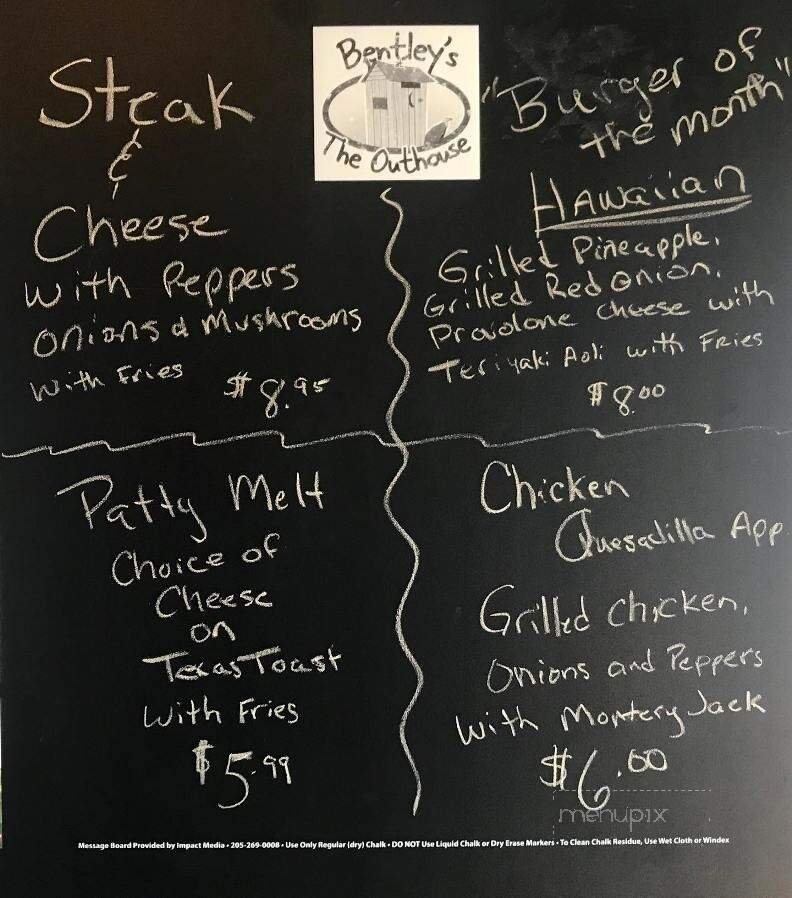 Bentley's
The Outhouse
Steak
&
Cheese
with Peppers
Onions & Mushrooms
with Fries
$8.95
"Burger of
the month"
Hawaiian
Grilled Pineapple,
Grilled Red Onion,
Provolone cheese with
Teriyaki Aoli with Fries
$8.00
Patty Melt
Choice of
Cheese
on
Texas Toast
with Fries
$5.99
Chicken
Quesadilla App
Grilled Chicken,
Onions and Peppers
with Montery Jack
$6.00
menupix
Message Board Provided by Impact Media • 205-269-0008 • Use Only Regular (dry) Chalk • DO NOT Use Liquid Chalk or Dry Erase Markers • To Clean Chalk Residue, Use Wet Cloth or Windex